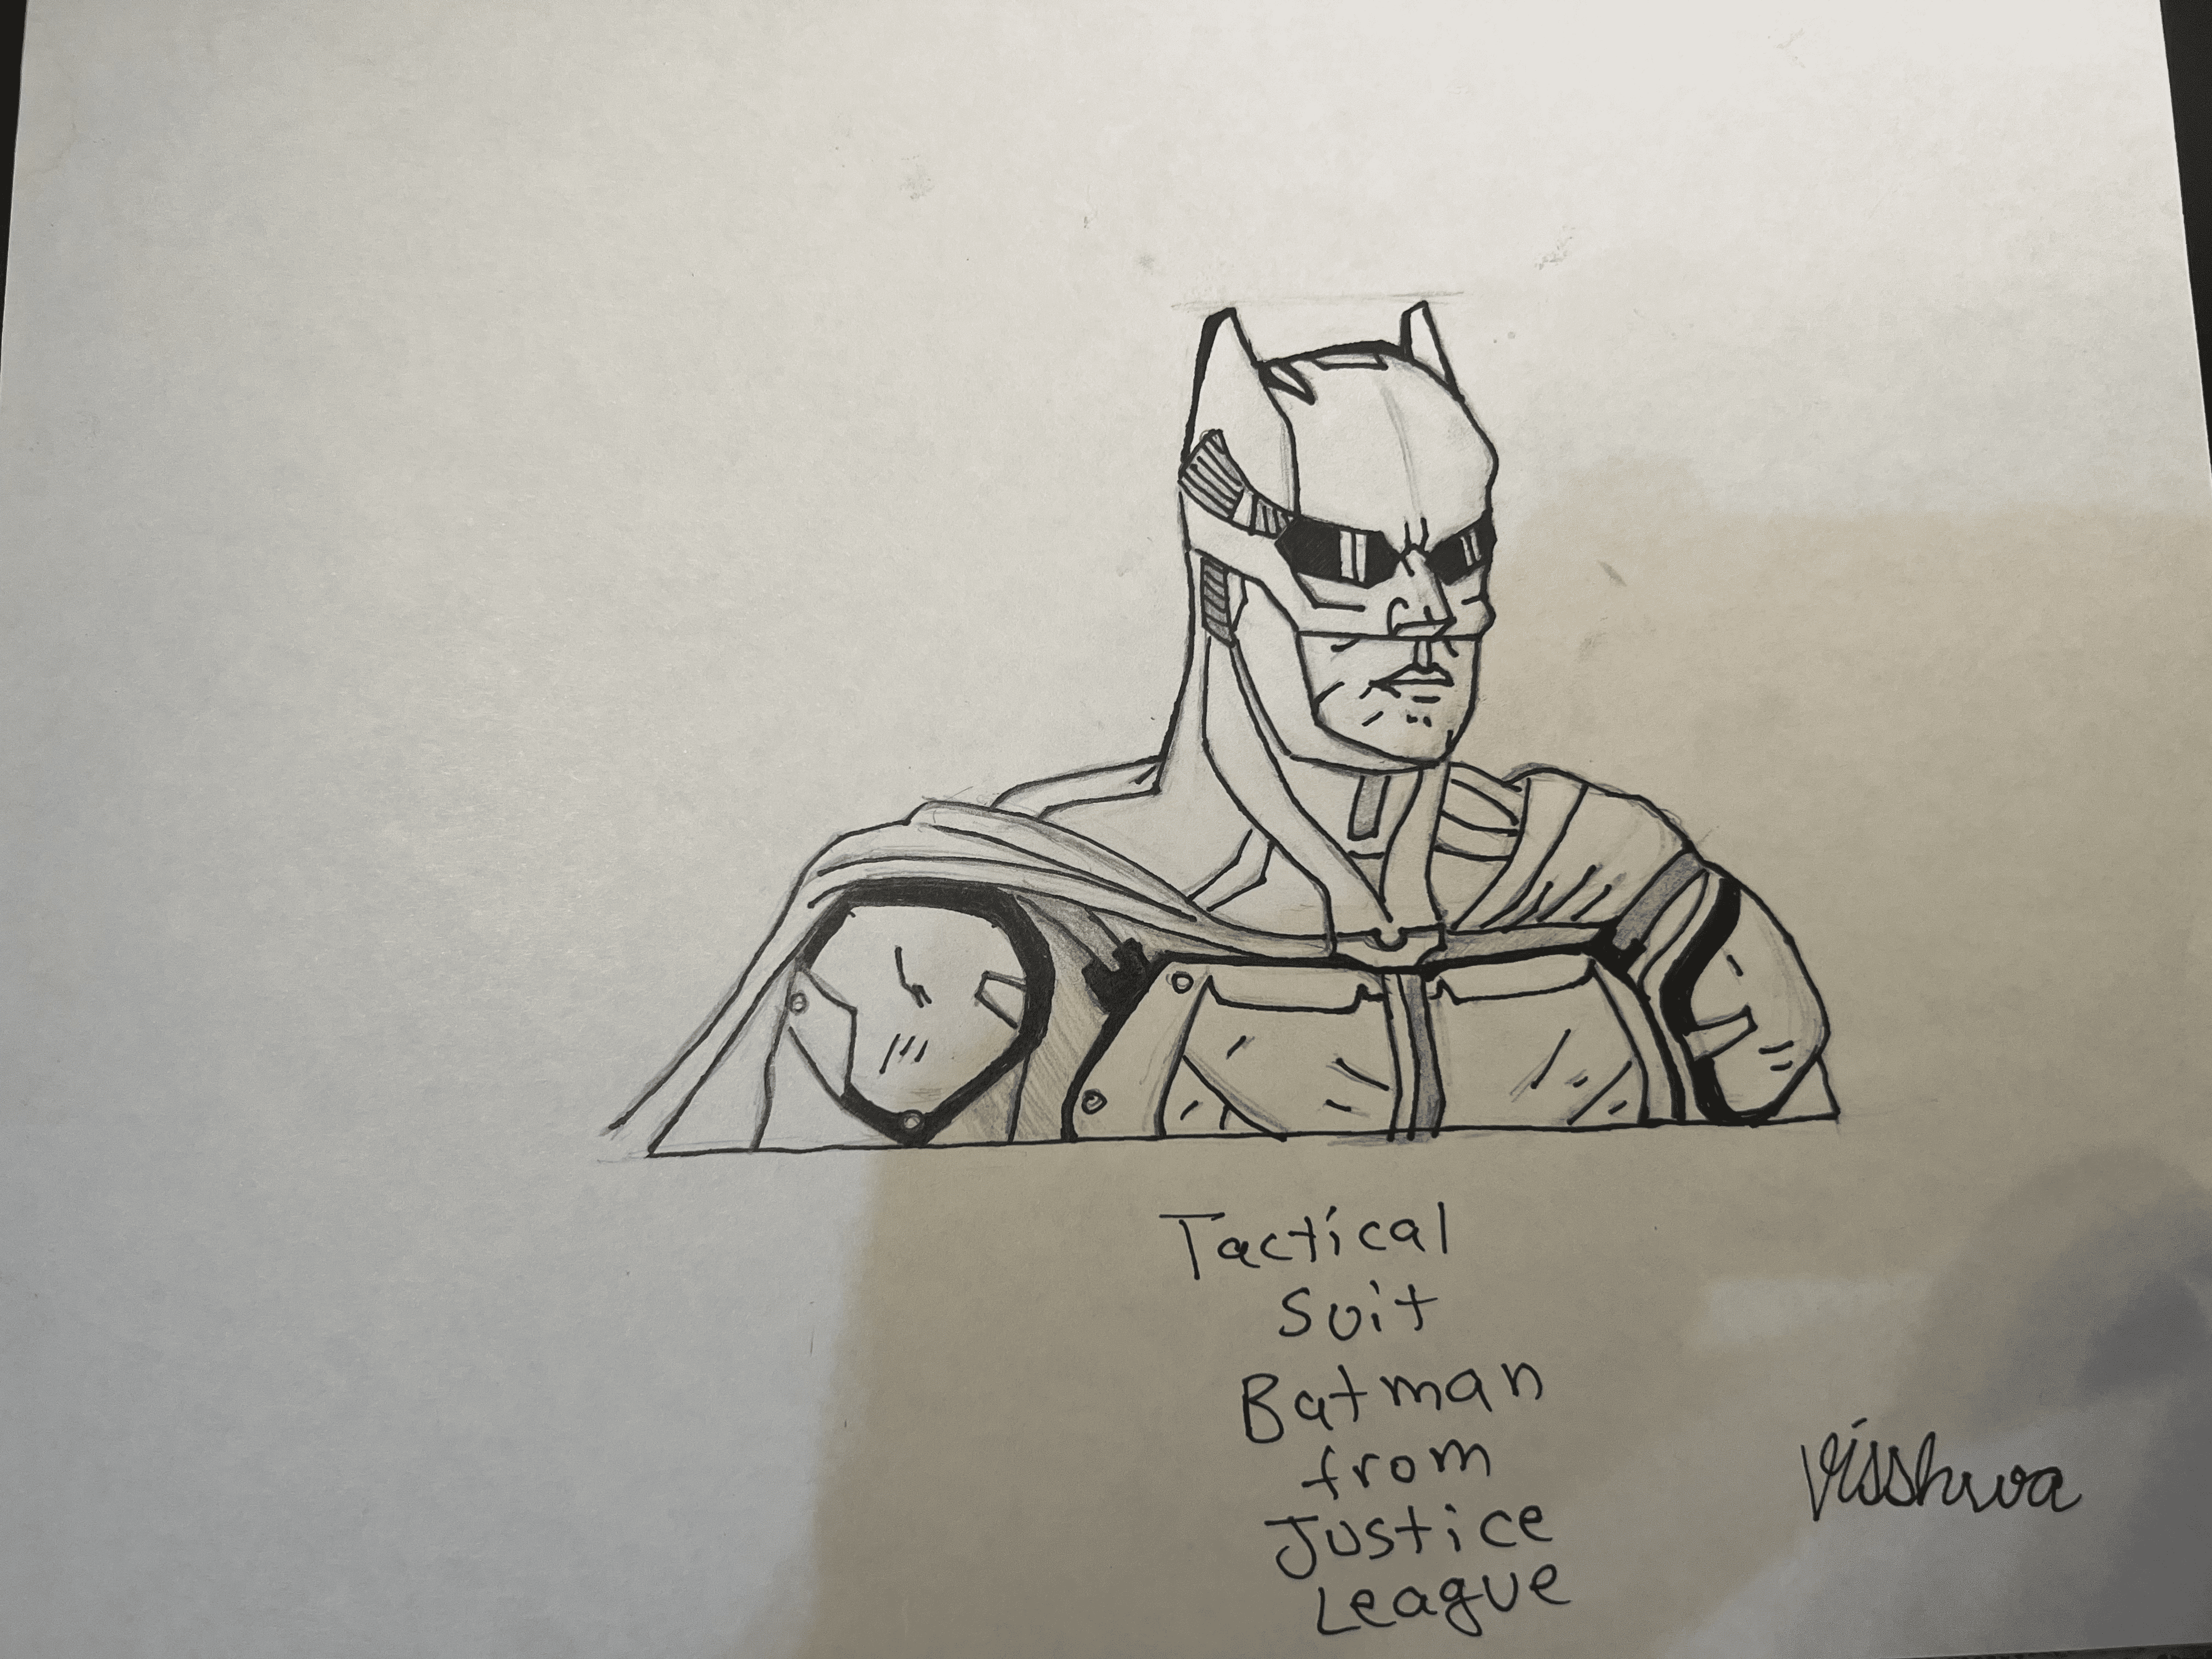 Tactical
Suit
Batman
from
Justice
League
Visshwa